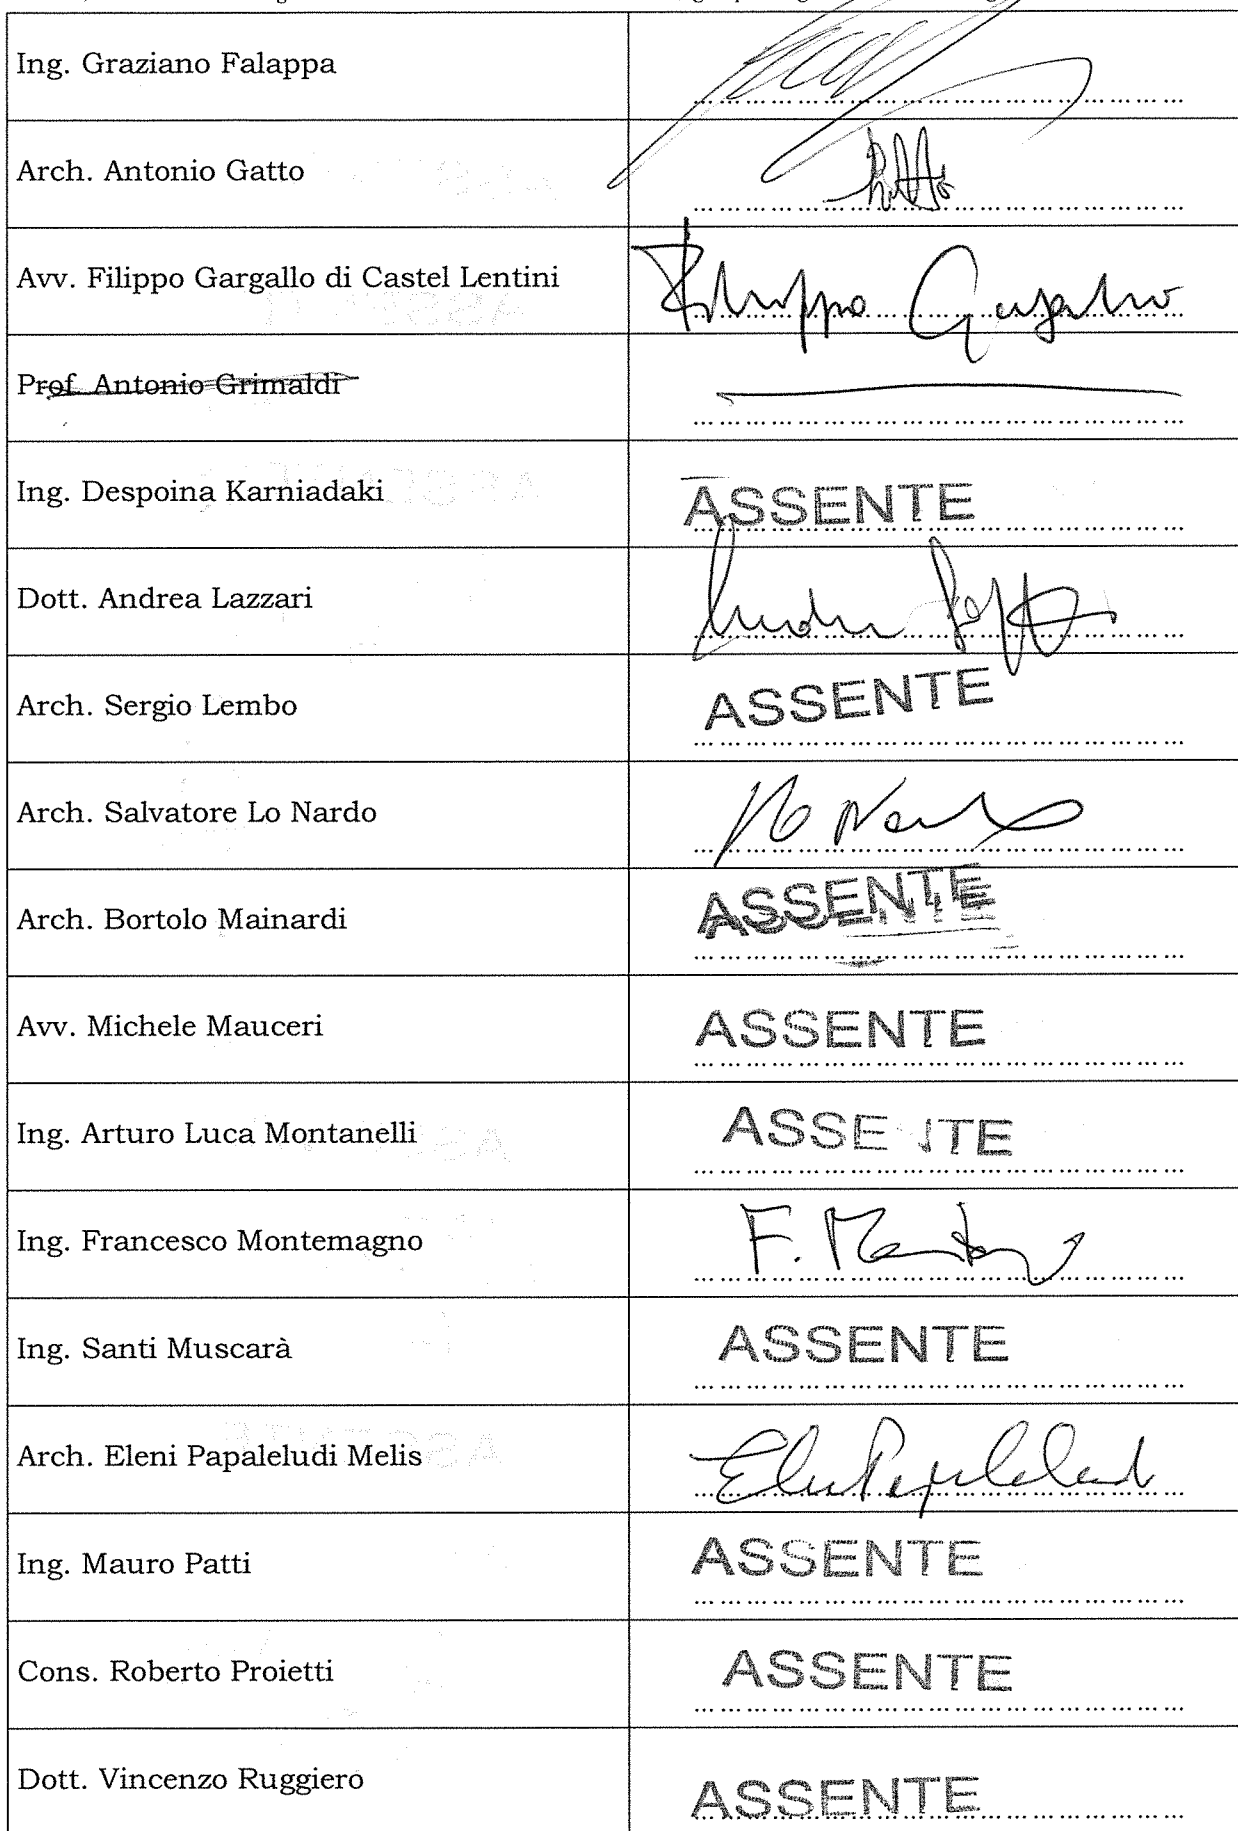 Ing. Graziano Falappa
Arch. Antonio Gatto
Avv. Filippo Gargallo di Castel Lentini
Filippo Gargallo
Prof. Antonio Grimaldi
Ing. Despoina Karniadaki
ASSENTE
Dott. Andrea Lazzari
Arch. Sergio Lembo
ASSENTE
Arch. Salvatore Lo Nardo
Lo Nardo
Arch. Bortolo Mainardi
ASSENTE
Avv. Michele Mauceri
ASSENTE
Ing. Arturo Luca Montanelli
ASSENTE
Ing. Francesco Montemagno
Ing. Santi Muscarà
ASSENTE
Arch. Eleni Papaleludi Melis
Ing. Mauro Patti
ASSENTE
Cons. Roberto Proietti
ASSENTE
Dott. Vincenzo Ruggiero
ASSENTE